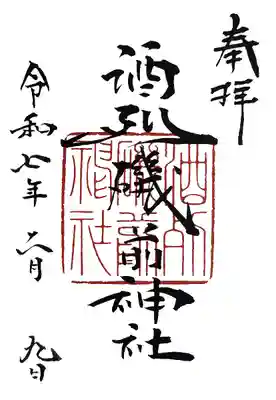 奉拝
酒列磯前神社
酒列
磯前
神社
令和七年六月九日